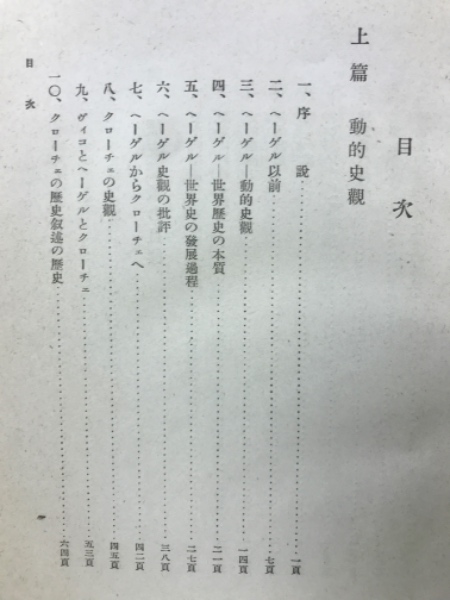 目次
上篇 動的史觀
一、序 說……………一頁
二、ヘーゲル以前……………七頁
三、ヘーゲル—動的史觀……………一四頁
四、ヘーゲル—世界歷史の本質……………二一頁
五、ヘーゲル—世界史の發展過程……………二七頁
六、ヘーゲル史觀の批評……………三八頁
七、ヘーゲルからクローチェへ……………四二頁
八、クローチェの史觀……………四五頁
九、ヴィコとヘーゲルとクローチェ……………五三頁
一〇、クローチェの歷史叙述の歷史……………六四頁
目次